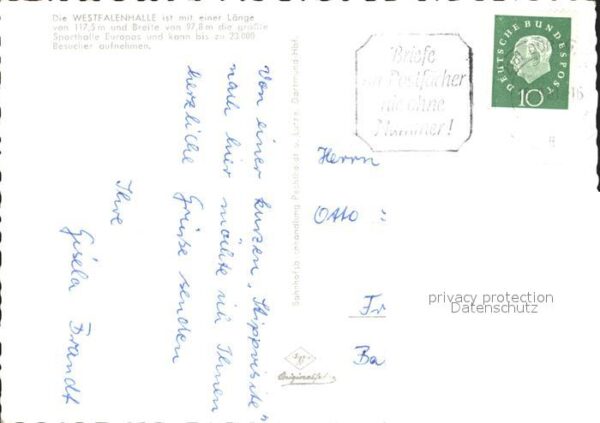 Die WESTFALENHALLE ist mit einer Länge
von 117,5 m und Breite von 97,8 m die größte
Sporthalle Europas und kann bis zu 23.000
Besucher aufnehmen.
Von einer kurzen „Stippvisite“
nach hier möchte ich Ihnen
herzliche Grüße senden
Ihre
Gisela Brandt
Bahnhofsbuchhandlung Dortmund-Hbf.
Briefe
an Postfächer
nie ohne
Nummer!
DEUTSCHE BUNDESPOST
10
Herrn
Otto
Fr
Ba
privacy protection
Datenschutz